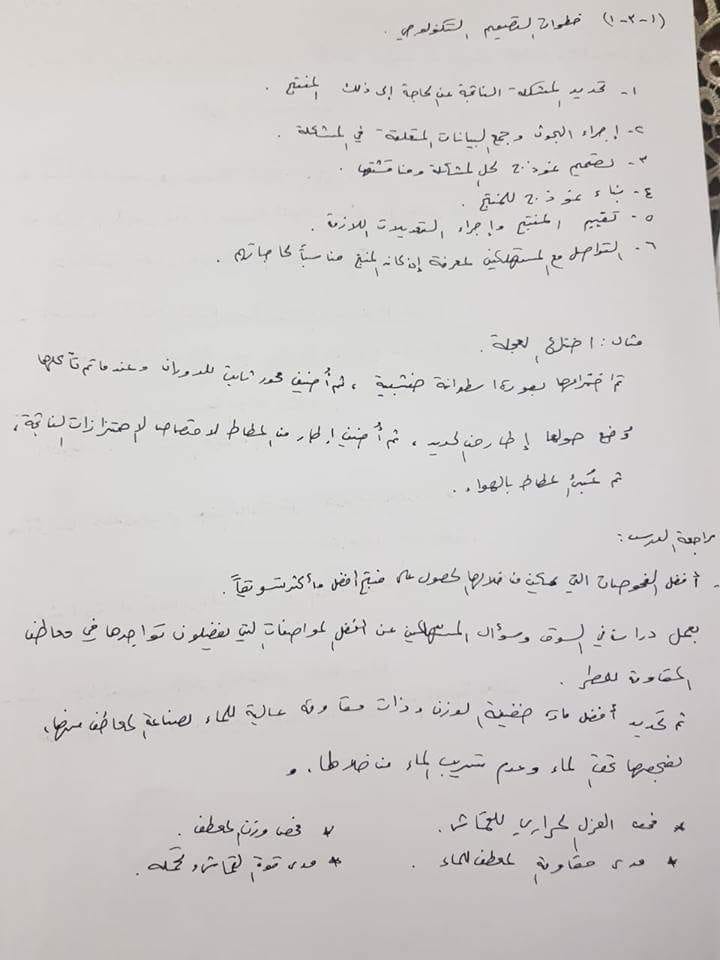 (١-٣-١) خطوات التصميم التكنولوجي.
١- تحديد المشكلة الناتجة عن الحاجة إلى ذلك المنتج.
٢- إجراء البحوث وجمع البيانات المتعلقة في المشكلة.
٣- تصميم نموذج لحل المشكلة ومناقشتها.
٤- بناء نموذج للمنتج.
٥- تقييم المنتج وإجراء التعديلات اللازمة.
٦- التواصل مع المستهلكين لمعرفة إن كان المنتج مناسباً لحاجاتهم.
مثال: اختراع العجلة.
تم اختراعها بصورة اسطوانة خشبية، ثم أُضيف محور ثابت للدوران وعندما تم تآكلها
وُضع حولها إطار من الحديد، ثم أُضيف إطار من المطاط لامتصاص الاهتزازات الناتجة،
ثم عُبئ المطاط بالهواء.
مراجعة الدرس:
- أفضل الفحوصات التي يمكن من خلالها الحصول على منتج أفضل وأكثر تسويقاً.
بعمل دراسة في السوق وسؤال المستهلكين عن أفضل المواصفات التي يفضلون تواجدها في معاطف
المقاومة للمطر.
ثم تحديد أفضل مادة خفيفة الوزن وذات مقاومة عالية للماء لصناعة المعاطف منها،
لفحصها تحت الماء وعدم تسريب الماء من خلالها. و
* فحص العزل الحراري للقماش. * فحص وزن المعطف.
* مدى مقاومة المعطف للماء. * مدى قوة القماش وتحمله.